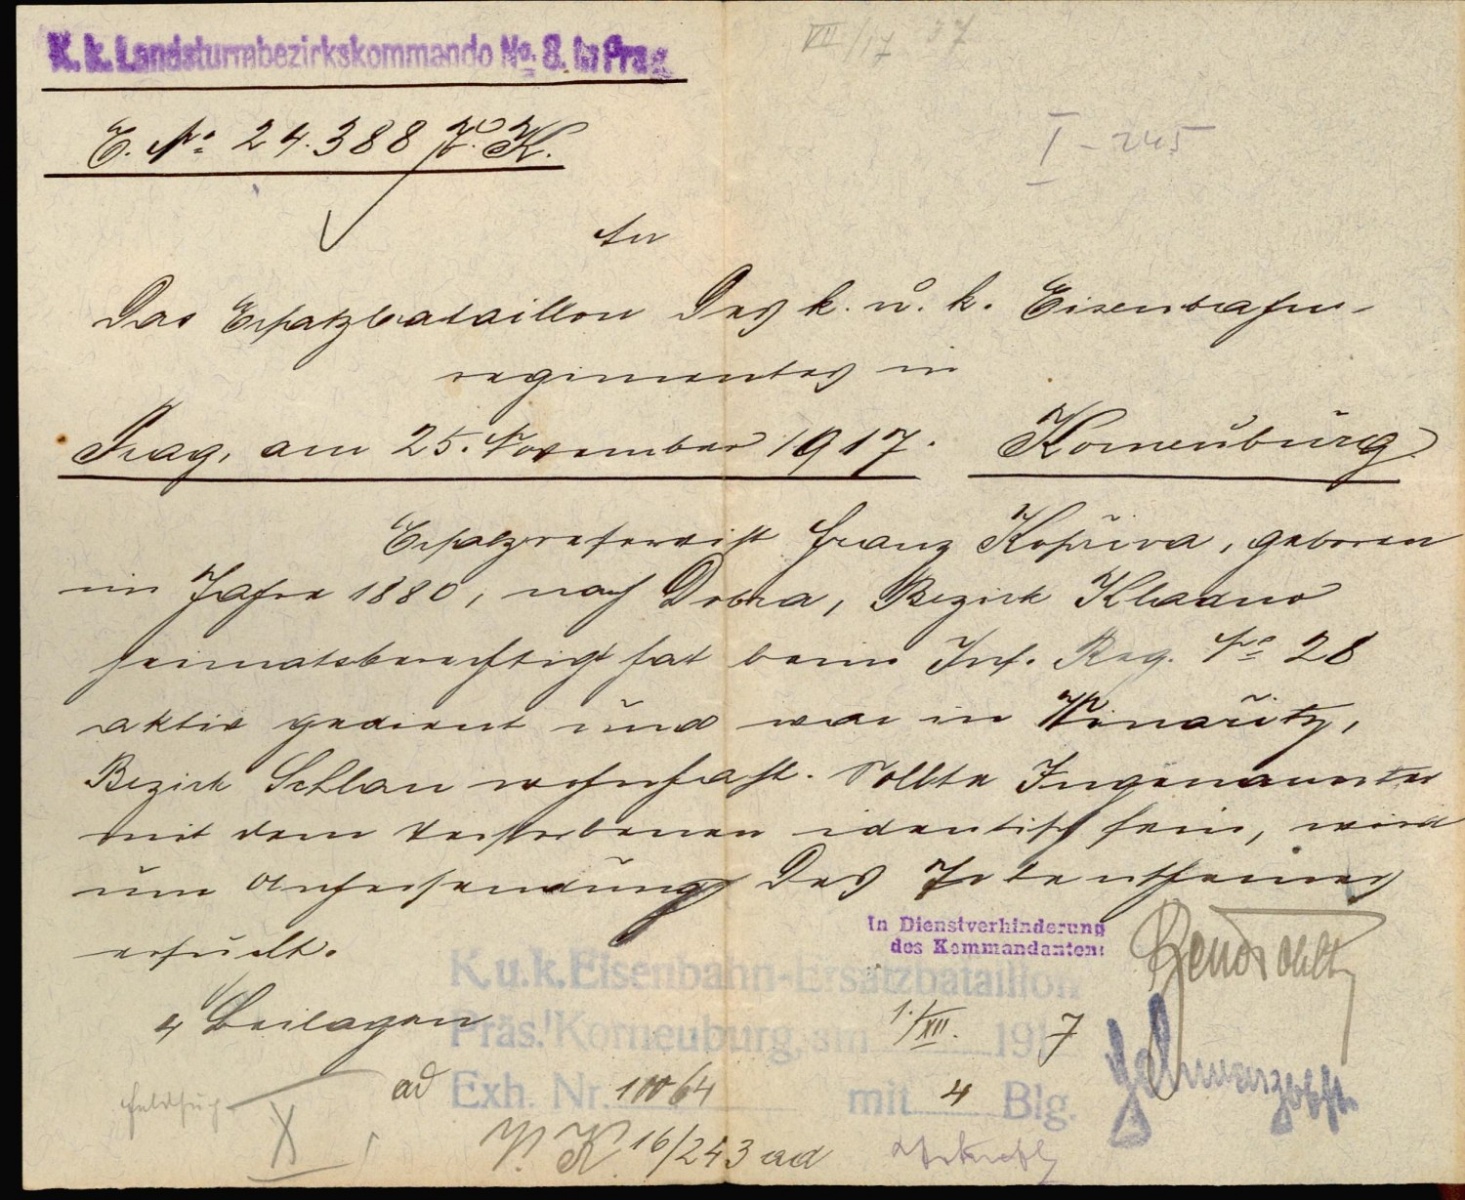 K. k. Landsturmbezirkskommando No. 8. in Prag
VII/17 37
E. No 24.388 K.
I - 245
An
das Ersatzbataillon des k. u. k. Eisenbahn-
regimentes in
Prag, am 25. November 1917. Korneuburg
Ersatzreservist Franz Kopřiva, geboren
im Jahre 1880, nach Dobra, Bezirk Kladno
heimatsberechtigt hat beim Inf. Reg. No 28
aktiv gedient und war in Winařitz,
Bezirk Schlan wohnhaft. Sollte Ingenannter
mit dem Verstorbenen identisch sein, wird
um Anhersendung des Totenscheines
ersucht.
In Dienstverhinderung
des Kommandanten:
4 Beilagen
K. u. k. Eisenbahn-Ersatzbataillon
Präs. Korneuburg, am 1./XII. 1917
ad Exh. Nr. 10064 mit 4 Blg.
X
V. K. 16/243 ad